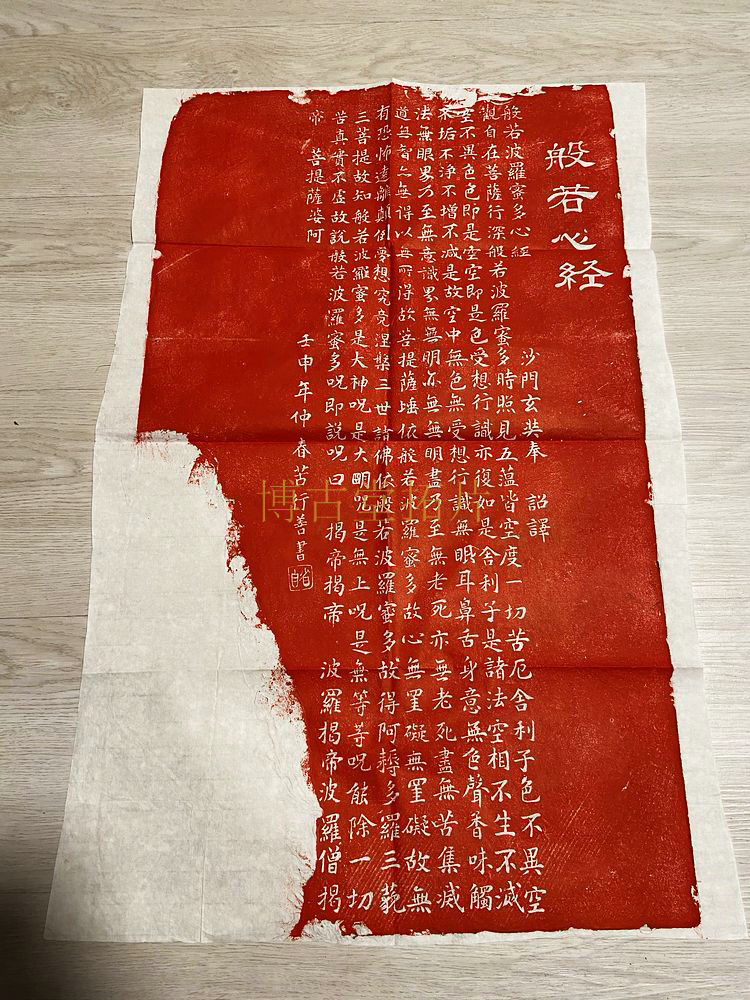 般若心経
般若波羅蜜多心経 沙門玄奘奉 詔譯
觀自在菩薩行深般若波羅蜜多時照見五蕰皆空度一切苦厄舍利子色不異空
空不異色色即是空空即是色受想行識亦復如是舍利子是諸法空相不生不滅
不垢不淨不增不減是故空中無色無受想行識無眼耳鼻舌身意無色聲香味觸
法無眼界乃至無意識界無無明亦無無明盡乃至無老死亦無老死盡無苦集滅
道無智亦無得以無所得故菩提薩埵依般若波羅蜜多故心無罣礙無罣礙故無
有恐怖遠離顛倒夢想究竟涅槃三世諸佛依般若波羅蜜多故得阿耨多羅三藐
三菩提故知般若波羅蜜多是大神呪是大明呪是無上呪是無等等呪能除一切
苦真實不虛故說般若波羅蜜多呪即說呪曰 揭帝揭帝 波羅揭帝波羅僧揭
帝 菩提薩婆阿
壬申年仲春苦行善書
博古堂拓片